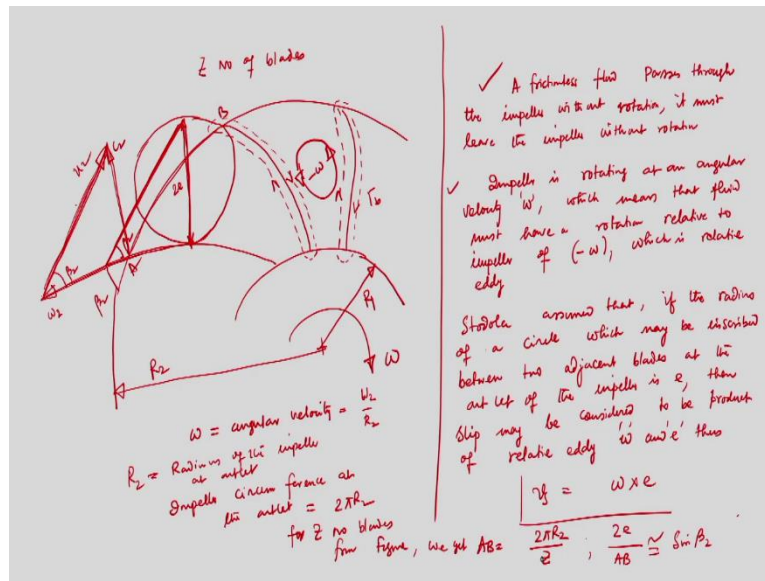 Z no of blades
B
u2
c2
2e
-ω
Γb
β2
A
β2
w2
R1
R2
ω
ω = angular velocity = u2/R2
R2 = Radius of the impeller
at outlet
Impeller circumference at
the outlet = 2πR2
for Z no blades
from figure, we get AB = 2πR2/Z ; 2e/AB ≃ Sin β2
✓ A frictionless fluid Passes through
the impeller without rotation, it must
leave the impeller without rotation
✓ Impeller is rotating at an angular
velocity 'ω', which means that fluid
must have a rotation relative to
impeller of (-ω), which is relative
eddy
Stodola assumed that, if the radius
of a circle which may be inscribed
between two adjacent blades at the
outlet of the impeller is e, then
slip may be considered to be product
of relatie eddy 'ω' and 'e' thus
= ω x e